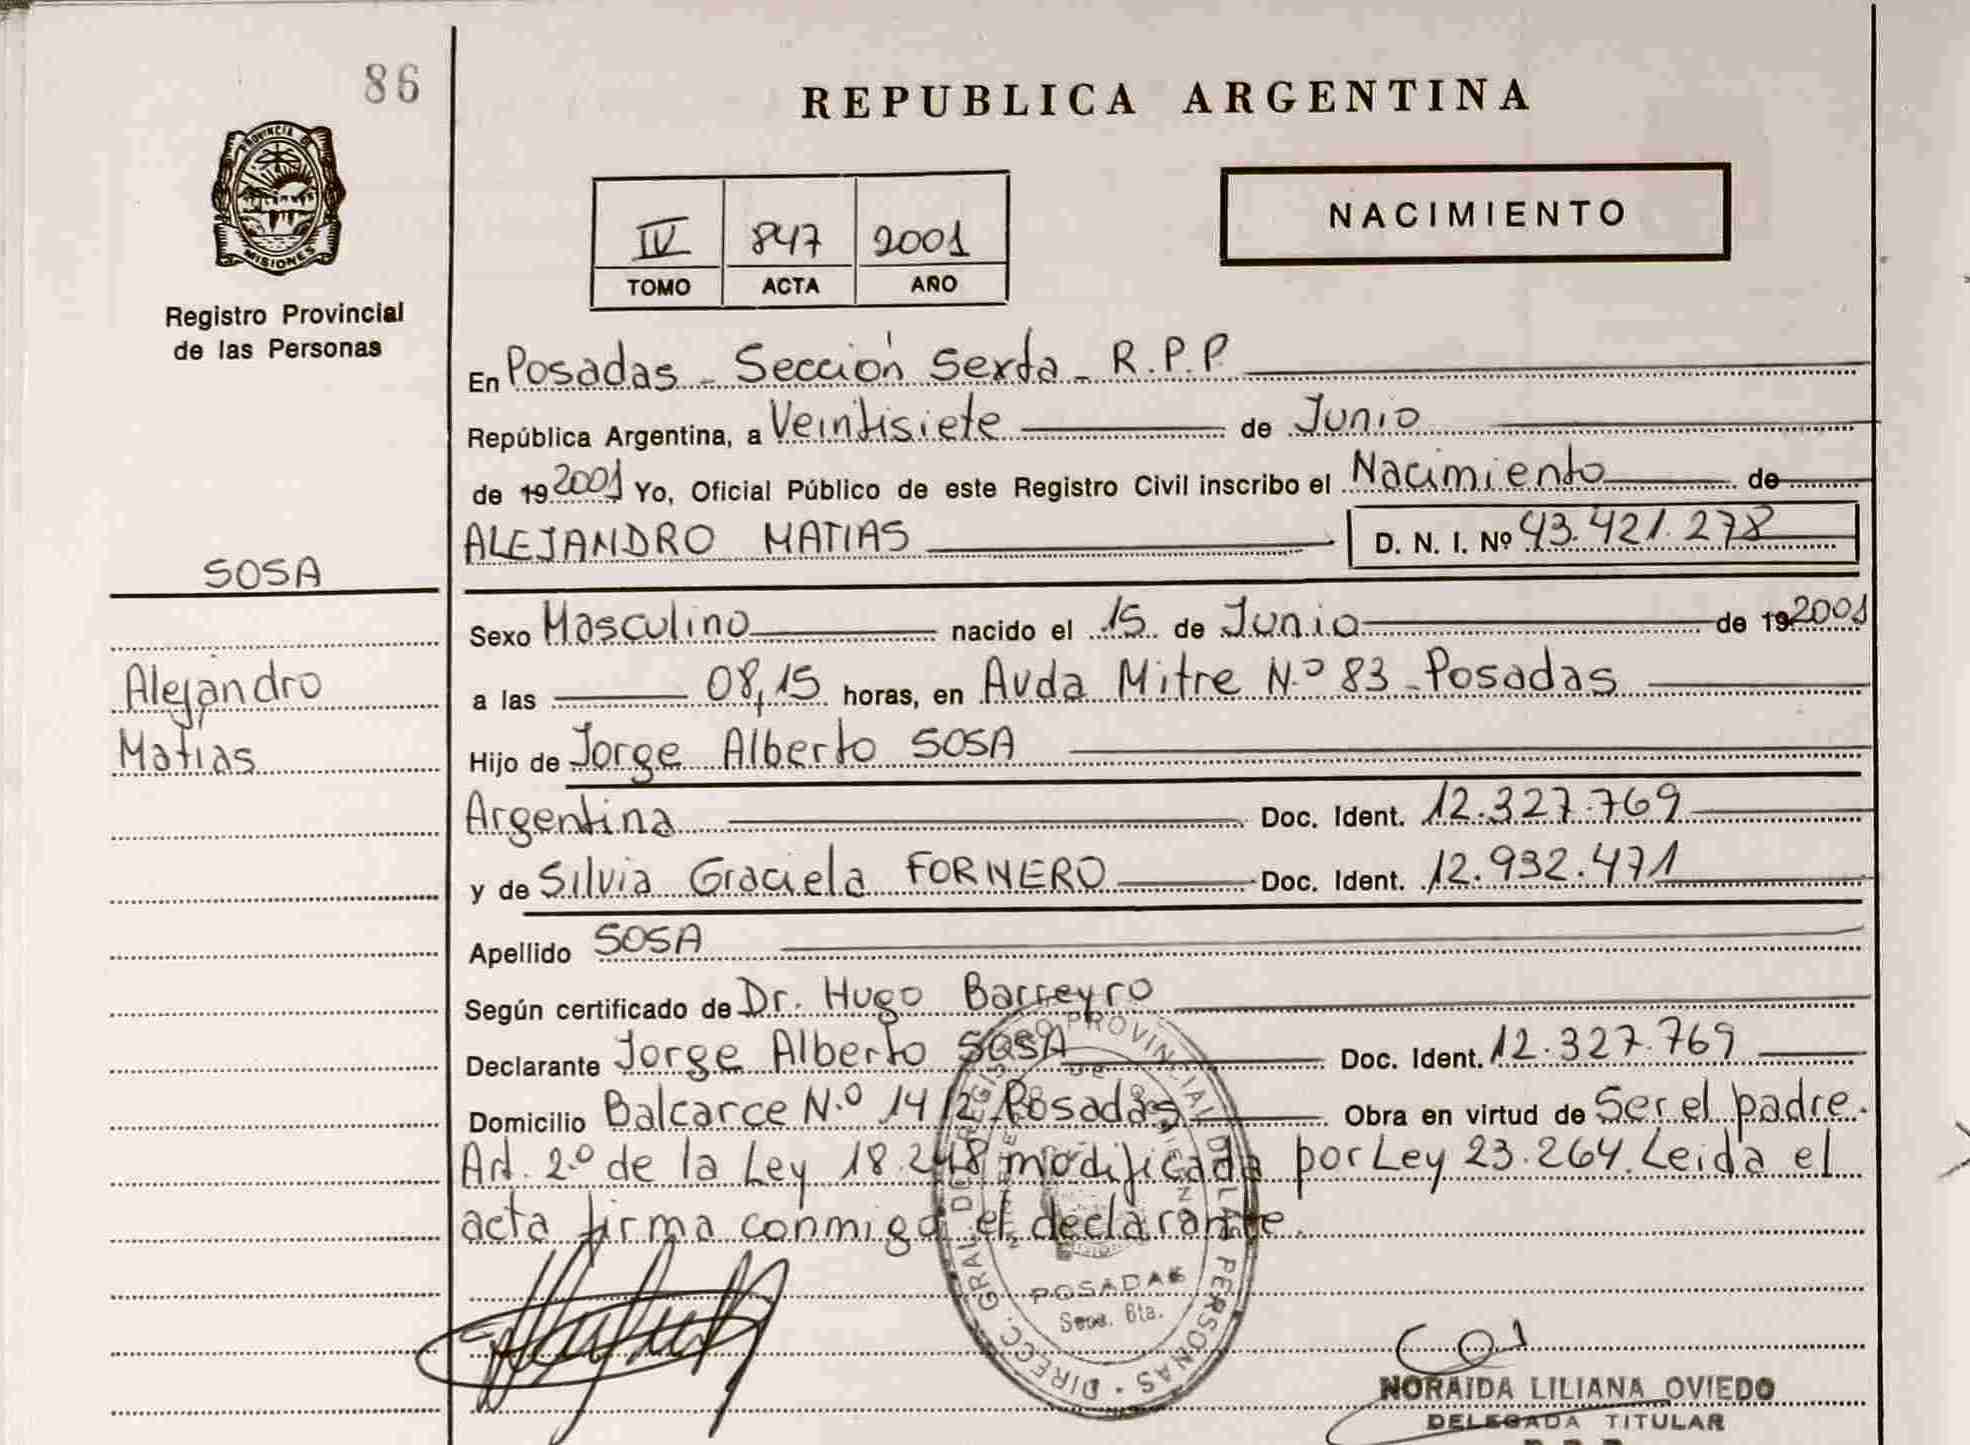 86
REPUBLICA ARGENTINA
PROVINCIA DE
MISIONES
Registro Provincial
de las Personas
IV 847 2001
TOMO ACTA AÑO
NACIMIENTO
En Posadas - Sección Sexta - R.P.P.
República Argentina, a Veintisiete de Junio
de 19 2001 Yo, Oficial Público de este Registro Civil inscribo el Nacimiento de
ALEJANDRO MATIAS D. N. I. Nº 43.421.278
SOSA
Sexo Masculino nacido el 15 de Junio de 19 2001
Alejandro
Matias
a las 08,15 horas, en Avda Mitre N.º 83 - Posadas
Hijo de Jorge Alberto SOSA
Argentina Doc. Ident. 12.327.769
y de Silvia Graciela FORNERO Doc. Ident. 12.932.471
Apellido SOSA
Según certificado de Dr. Hugo Barreyro
Declarante Jorge Alberto SOSA Doc. Ident. 12.327.769
Domicilio Balcarce N.º 1412 Posadas Obra en virtud de Ser el padre.
Art. 2.º de la Ley 18.248 modificada por Ley 23.264. Leida el
acta firma conmigo el declarante.
DIRECC. GRAL. DEL REGISTRO PROVINCIAL DE LAS PERSONAS
POSADAS
Secc. 6ta.
NORAIDA LILIANA OVIEDO
DELEGADA TITULAR